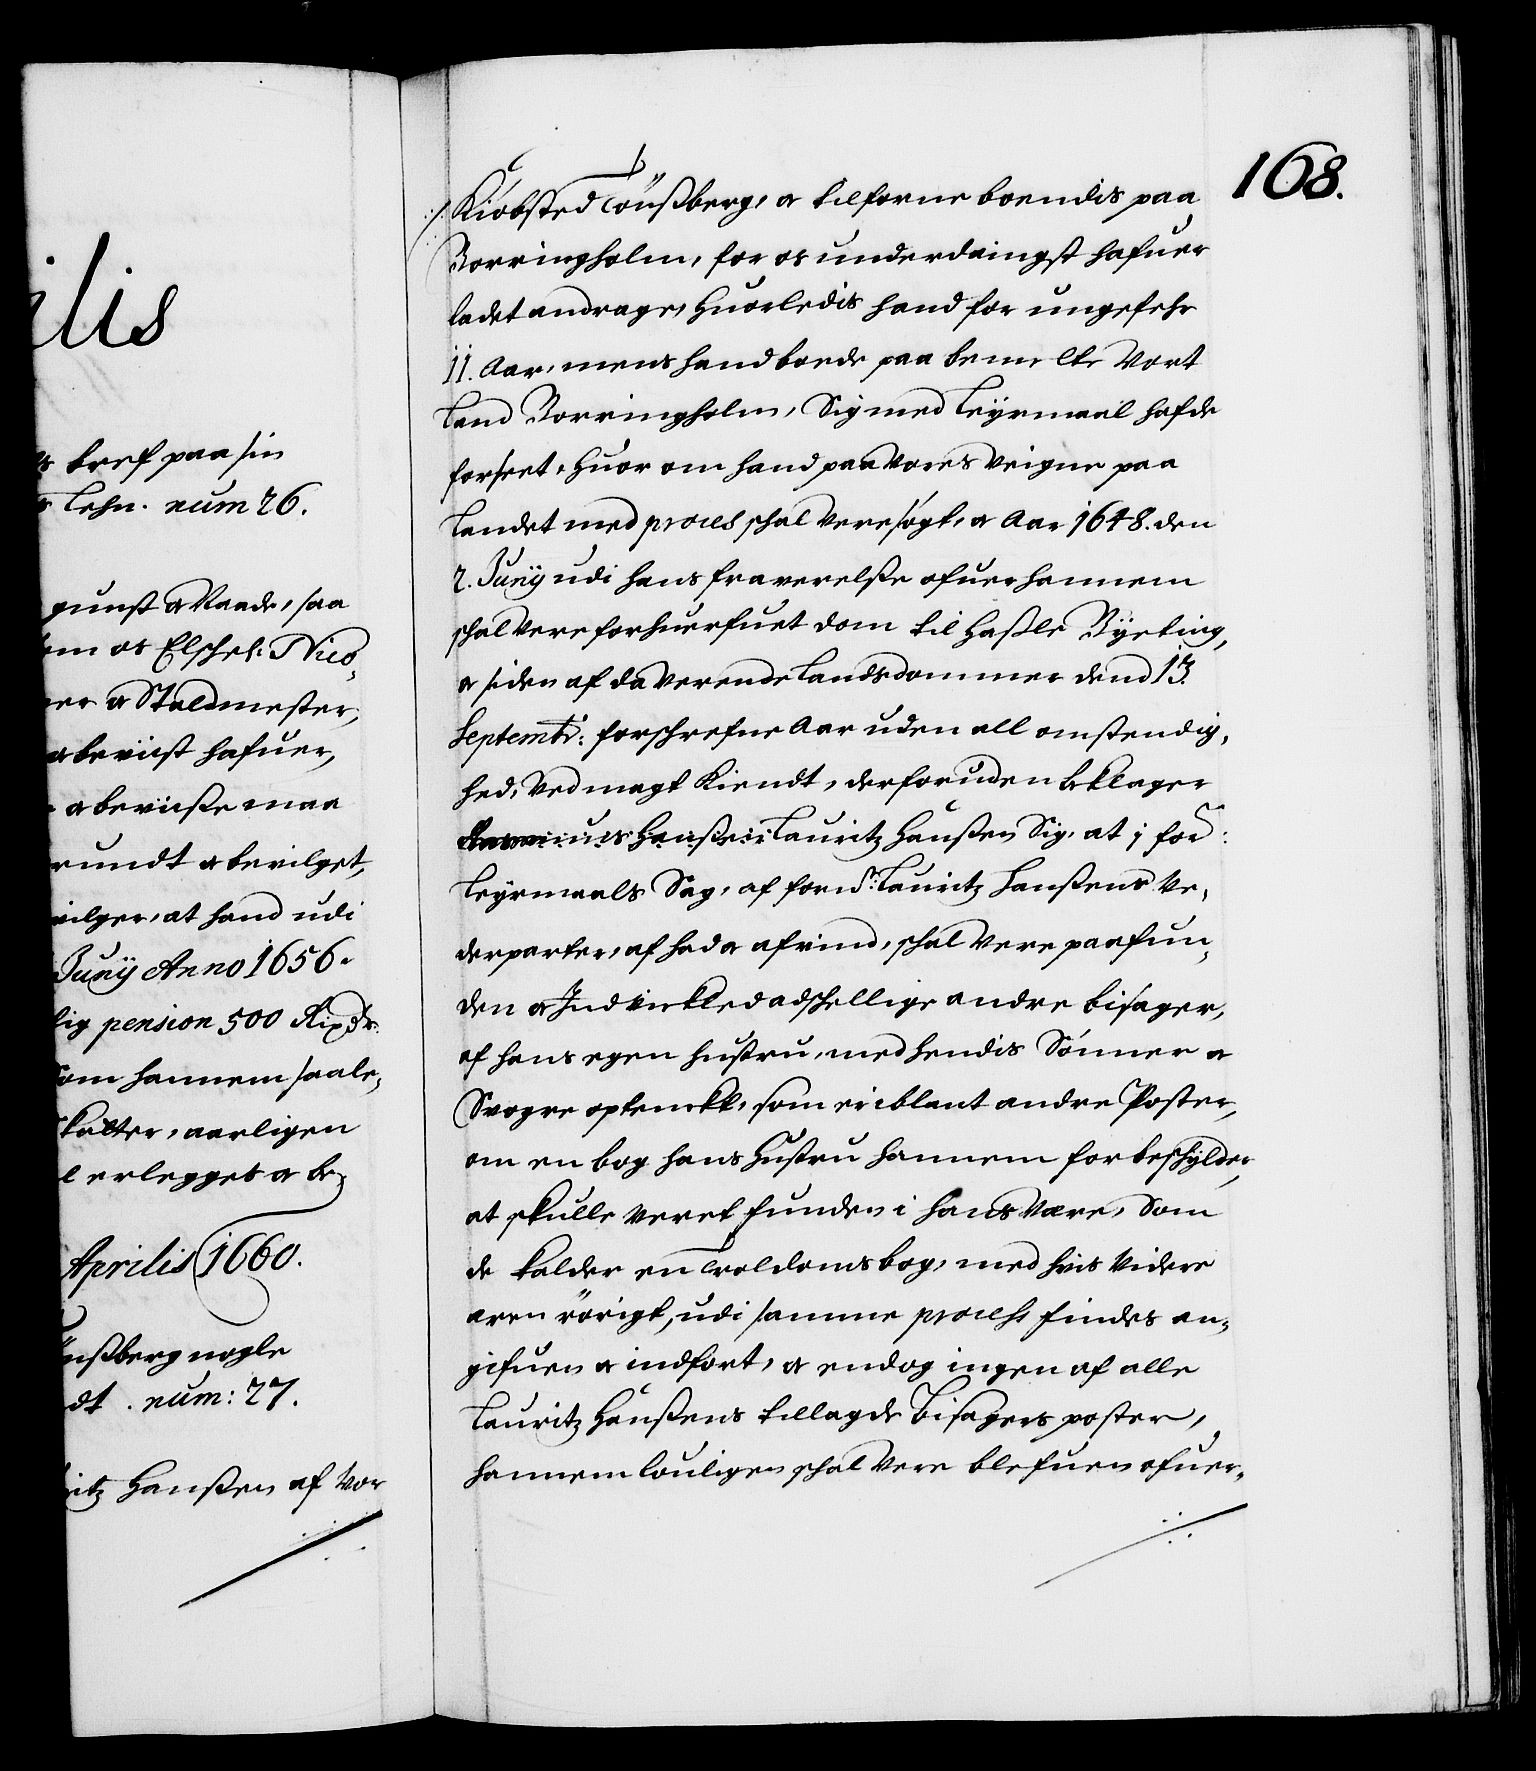 ilis
bref paa sin
Lehn. num 26.
gunst oc Naade, saa
om os Elschel: Nico-
ner oc Staldmester,
oc beviist hafuer,
oc beviisse maa
rundt oc bevilget,
vilger, at hand udi
Junÿ Anno 1656.
lig pension 500 Rixdr:
som hannem saale-
skatter, aarligen
erlegges oc be-
Aprilis 1660.
nßberg nogle
dt. num: 27.
ritz Hanßen af Vor
168.
Kiøbsted Tönßberg, oc tilforne boendis paa
Borringholm, for os underdaingst hafuer
ladet andrage, huorledis hand for ungefehr
11. Aar, mens hand boede paa bemelte Vort
Land Borringholm, Sig med Leÿrmaal hafde
forseet, huor om hand paa Vores Veigne paa
Landet med proces schal vere søgt, oc Aar 1648. den
2. Junÿ udi hans fraverelße ofuer hannem
schal vere forhuerfuet dom til Haßle Bÿeting,
oc siden af da verende Landsdommer dend 13.
Septembr: forschrefne Aar uden all omstendig-
hed, Ved magt Kiendt, derforuden beklager
Rasmus Hanßen Lauritz Hanßen Sig, at i for:ne
Leÿrmaals Sag, af forn:te Lauritz Hanßens Ve-
derparter, af had oc afvind, schal vere paafun-
den oc Indvirkled adschellige andre bisager,
af hans egen hustru, med hendis Sønner oc
Svogre optenckt, som er iblant andre Poster,
om en bog hans Hustru hannem for beschÿlder,
at skulle veret funden i hans Være, Som
de kalder en Troldoms bog, med hvis videre
aren rörigt, udi samme process findes an-
gifuen oc indført, oc endog ingen af alle
Lauritz Hanßens tillagde Bisagers poster,
hannem louligen schal vere blefuen ofuer-